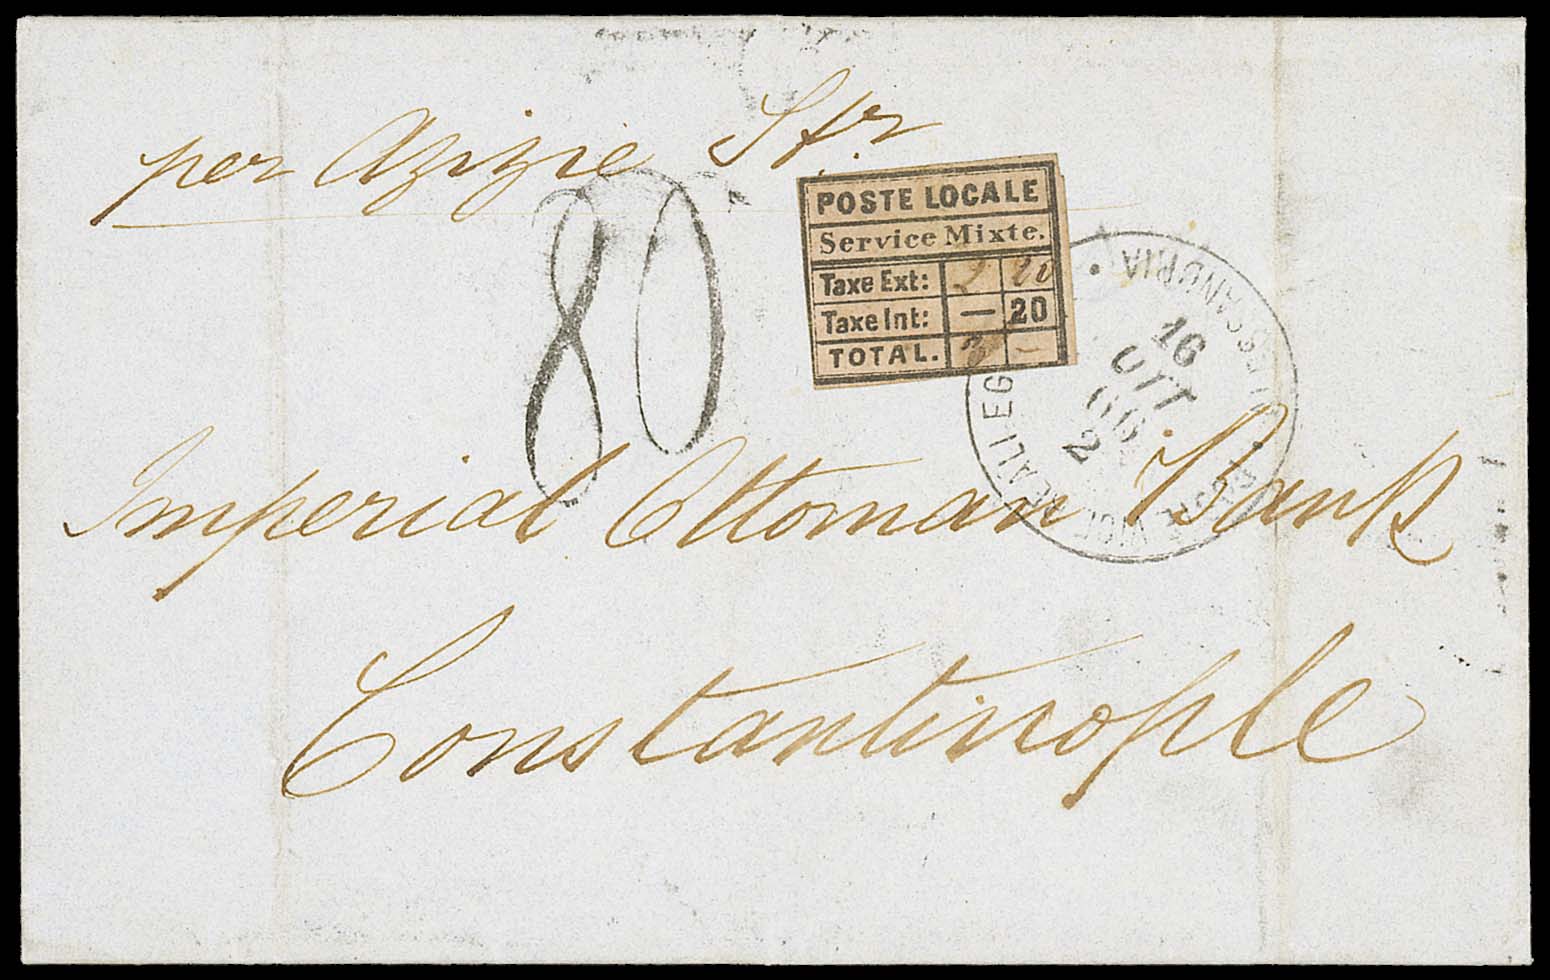 per Azizie Str
80
POSTE LOCALE
Service Mixte.
Taxe Ext: 2 20
Taxe Int: — 20
TOTAL. 3 –
ALESSANDRIA
16
OTT
66
2
REALI EG
Imperial Ottoman Bank
Constantinople